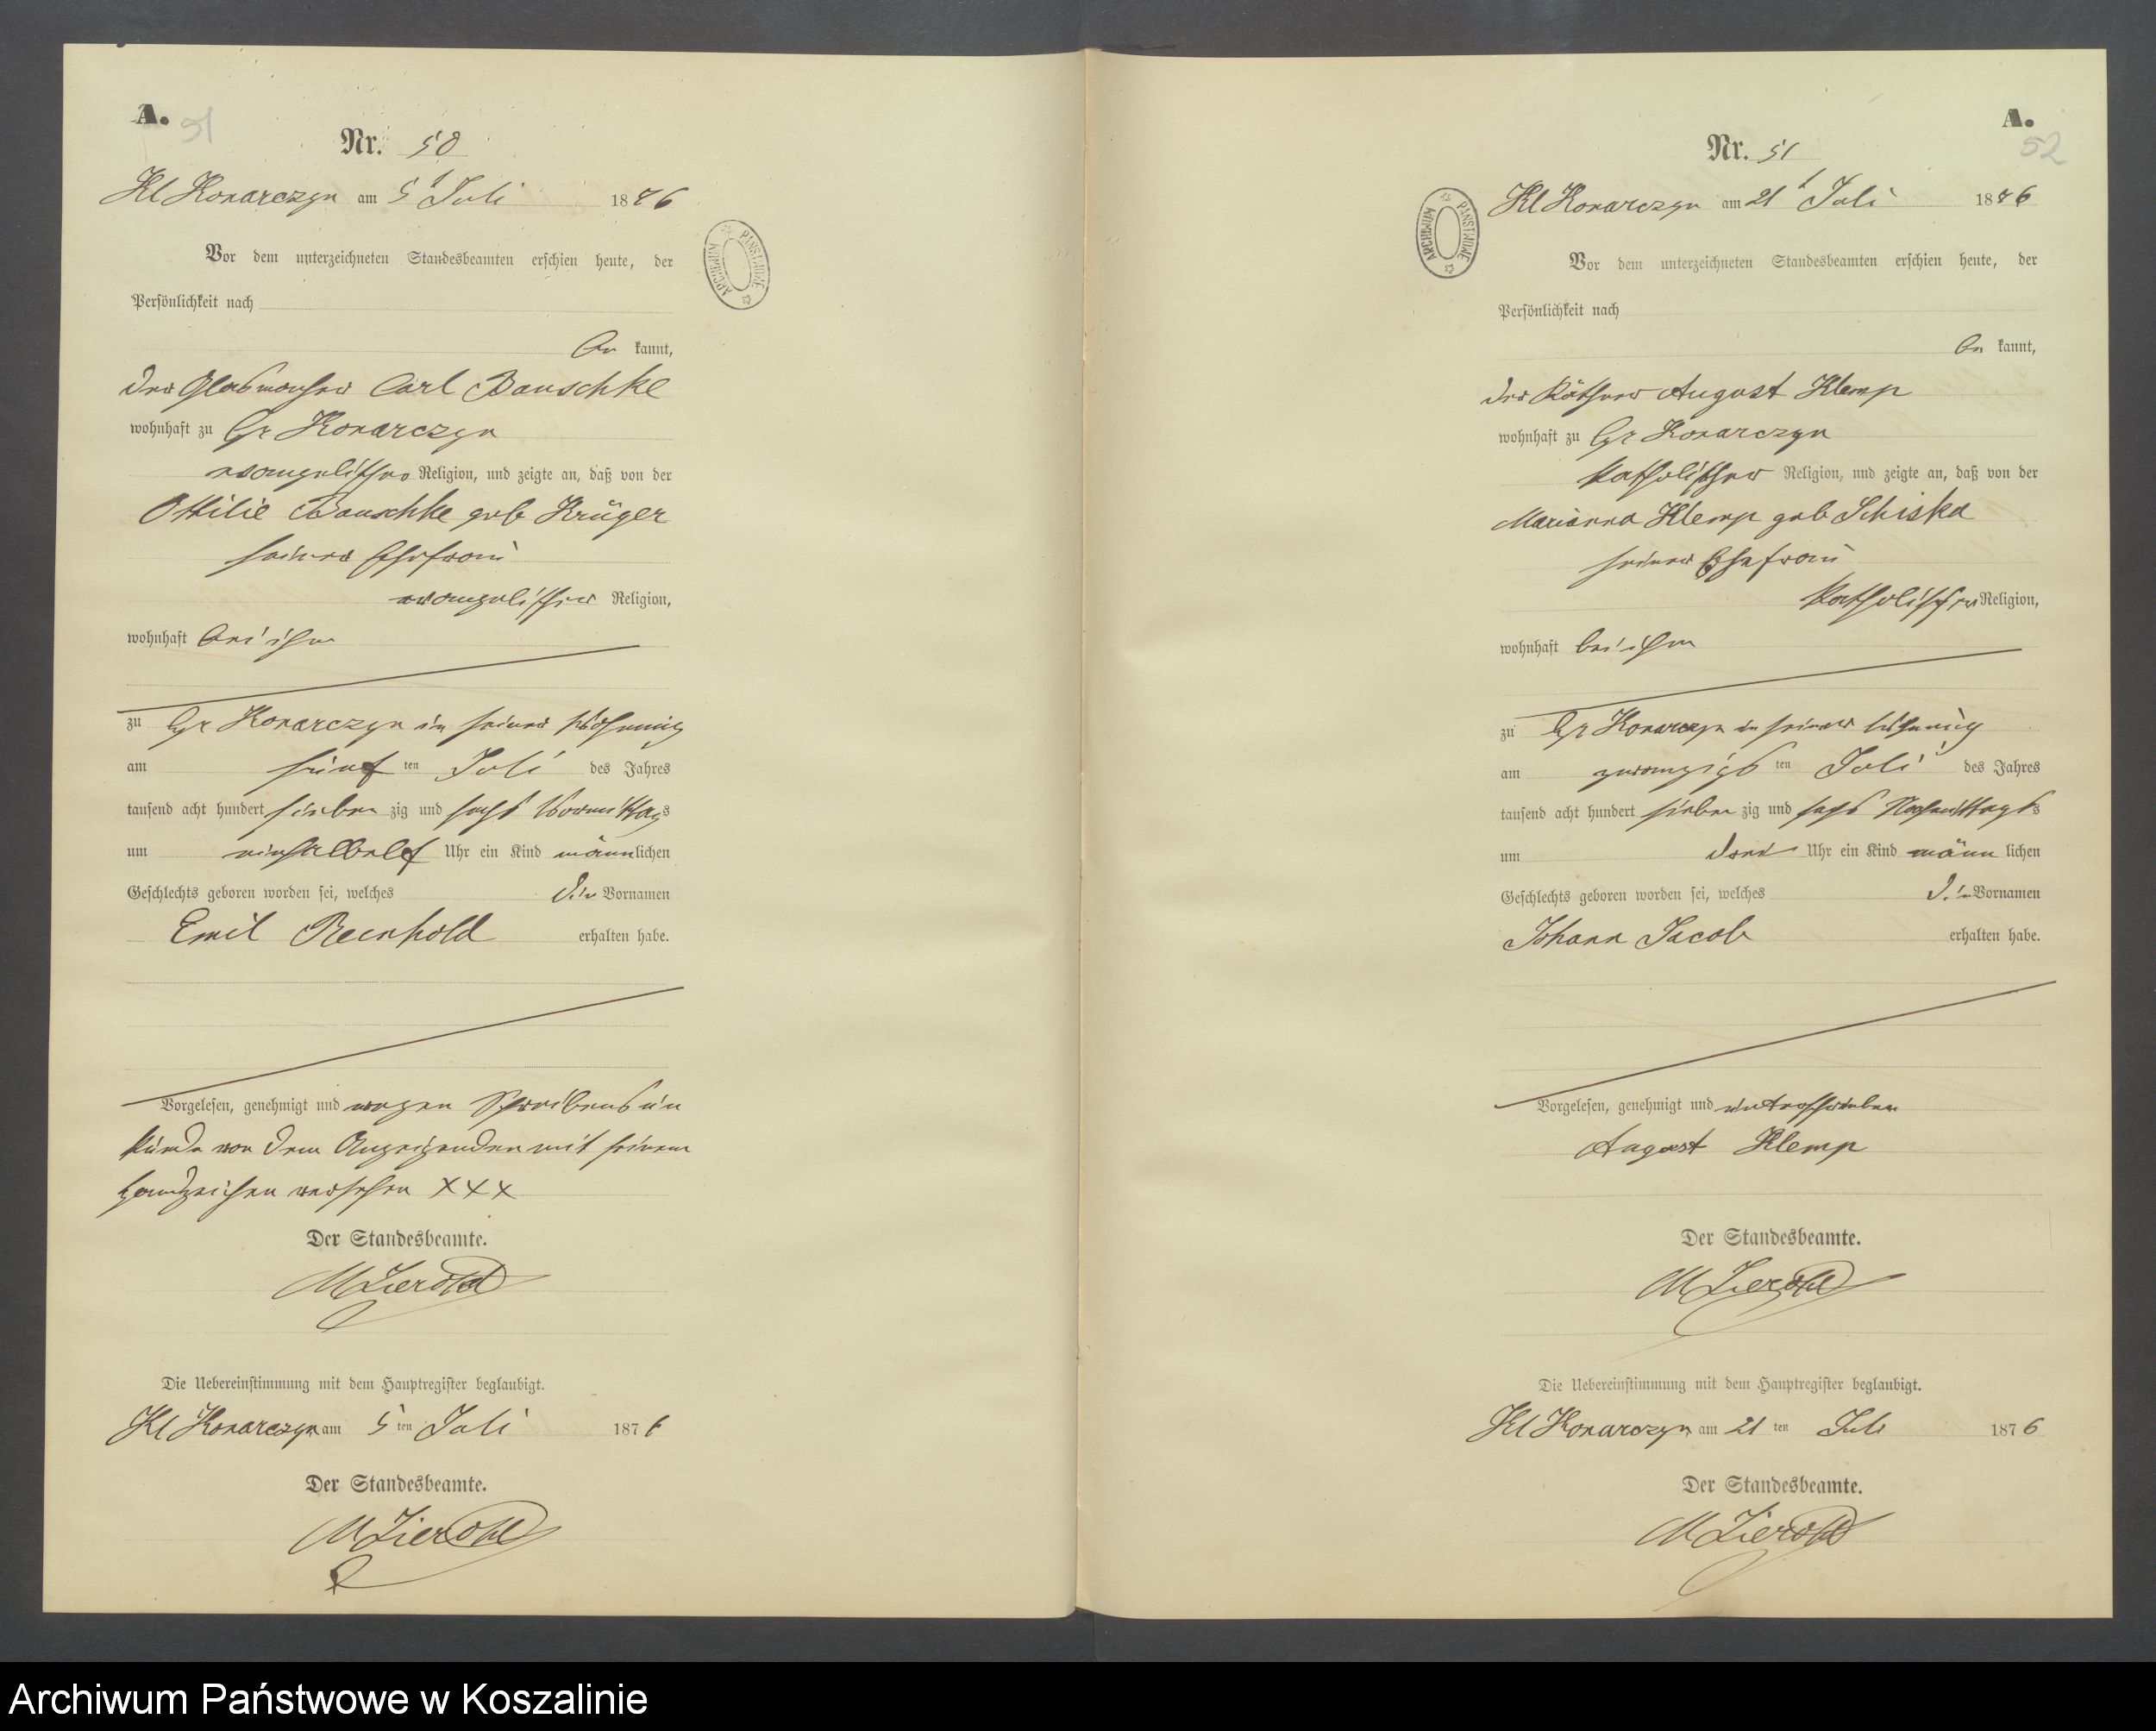 A.
51
Nr. 50
Kl Konarczyn am 5t Juli 1876
Vor dem unterzeichneten Standesbeamten erschien heute, der
Persönlichkeit nach
be kannt,
der Glasmacher Carl Bauschke
wohnhaft zu Gr Konarczyn
evangelischer Religion, und zeigte an, daß von der
Ottilie Bauschke geb Krüger
seiner Ehefrau
evangelischer Religion,
wohnhaft bei ihm
zu Gr Konarczyn in seiner Wohnung
am fünf ten Juli des Jahres
tausend acht hundert sieben zig und sechs Vormittags
um einhalbelf Uhr ein Kind männlichen
Geschlechts geboren worden sei, welches die Vornamen
Emil Reinhold erhalten habe.
Vorgelesen, genehmigt und wegen Schreibensun
kunde von dem Anzeigenden mit seinem
Handzeichen versehen XXX
Der Standesbeamte.
M Zierold
Die Uebereinstimmung mit dem Hauptregister beglaubigt.
Kl Konarczyn am 5 ten Juli 1876
Der Standesbeamte.
M Zierold
ARCHIWUM PAŃSTWOWE
A.
52
Nr. 51
Kl Konarczyn am 21t Juli 1876
ARCHIWUM PAŃSTWOWE
Vor dem unterzeichneten Standesbeamten erschien heute, der
Persönlichkeit nach
be kannt,
der Käthner August Klemp
wohnhaft zu Gr Konarczyn
katholischer Religion, und zeigte an, daß von der
Marianna Klemp geb Schiska
seiner Ehefrau
katholischer Religion,
wohnhaft bei ihm
zu Gr Konarczyn in seiner Wohnung
am zwanzigs ten Juli des Jahres
tausend acht hundert sieben zig und sechs Nachmittags
um drei Uhr ein Kind männ lichen
Geschlechts geboren worden sei, welches die Vornamen
Johann Jacob erhalten habe.
Vorgelesen, genehmigt und unterschrieben
August Klemp
Der Standesbeamte.
M Zierold
Die Uebereinstimmung mit dem Hauptregister beglaubigt.
Kl Konarczyn am 21 ten Juli 1876
Der Standesbeamte.
M Zierold
Archiwum Państwowe w Koszalinie